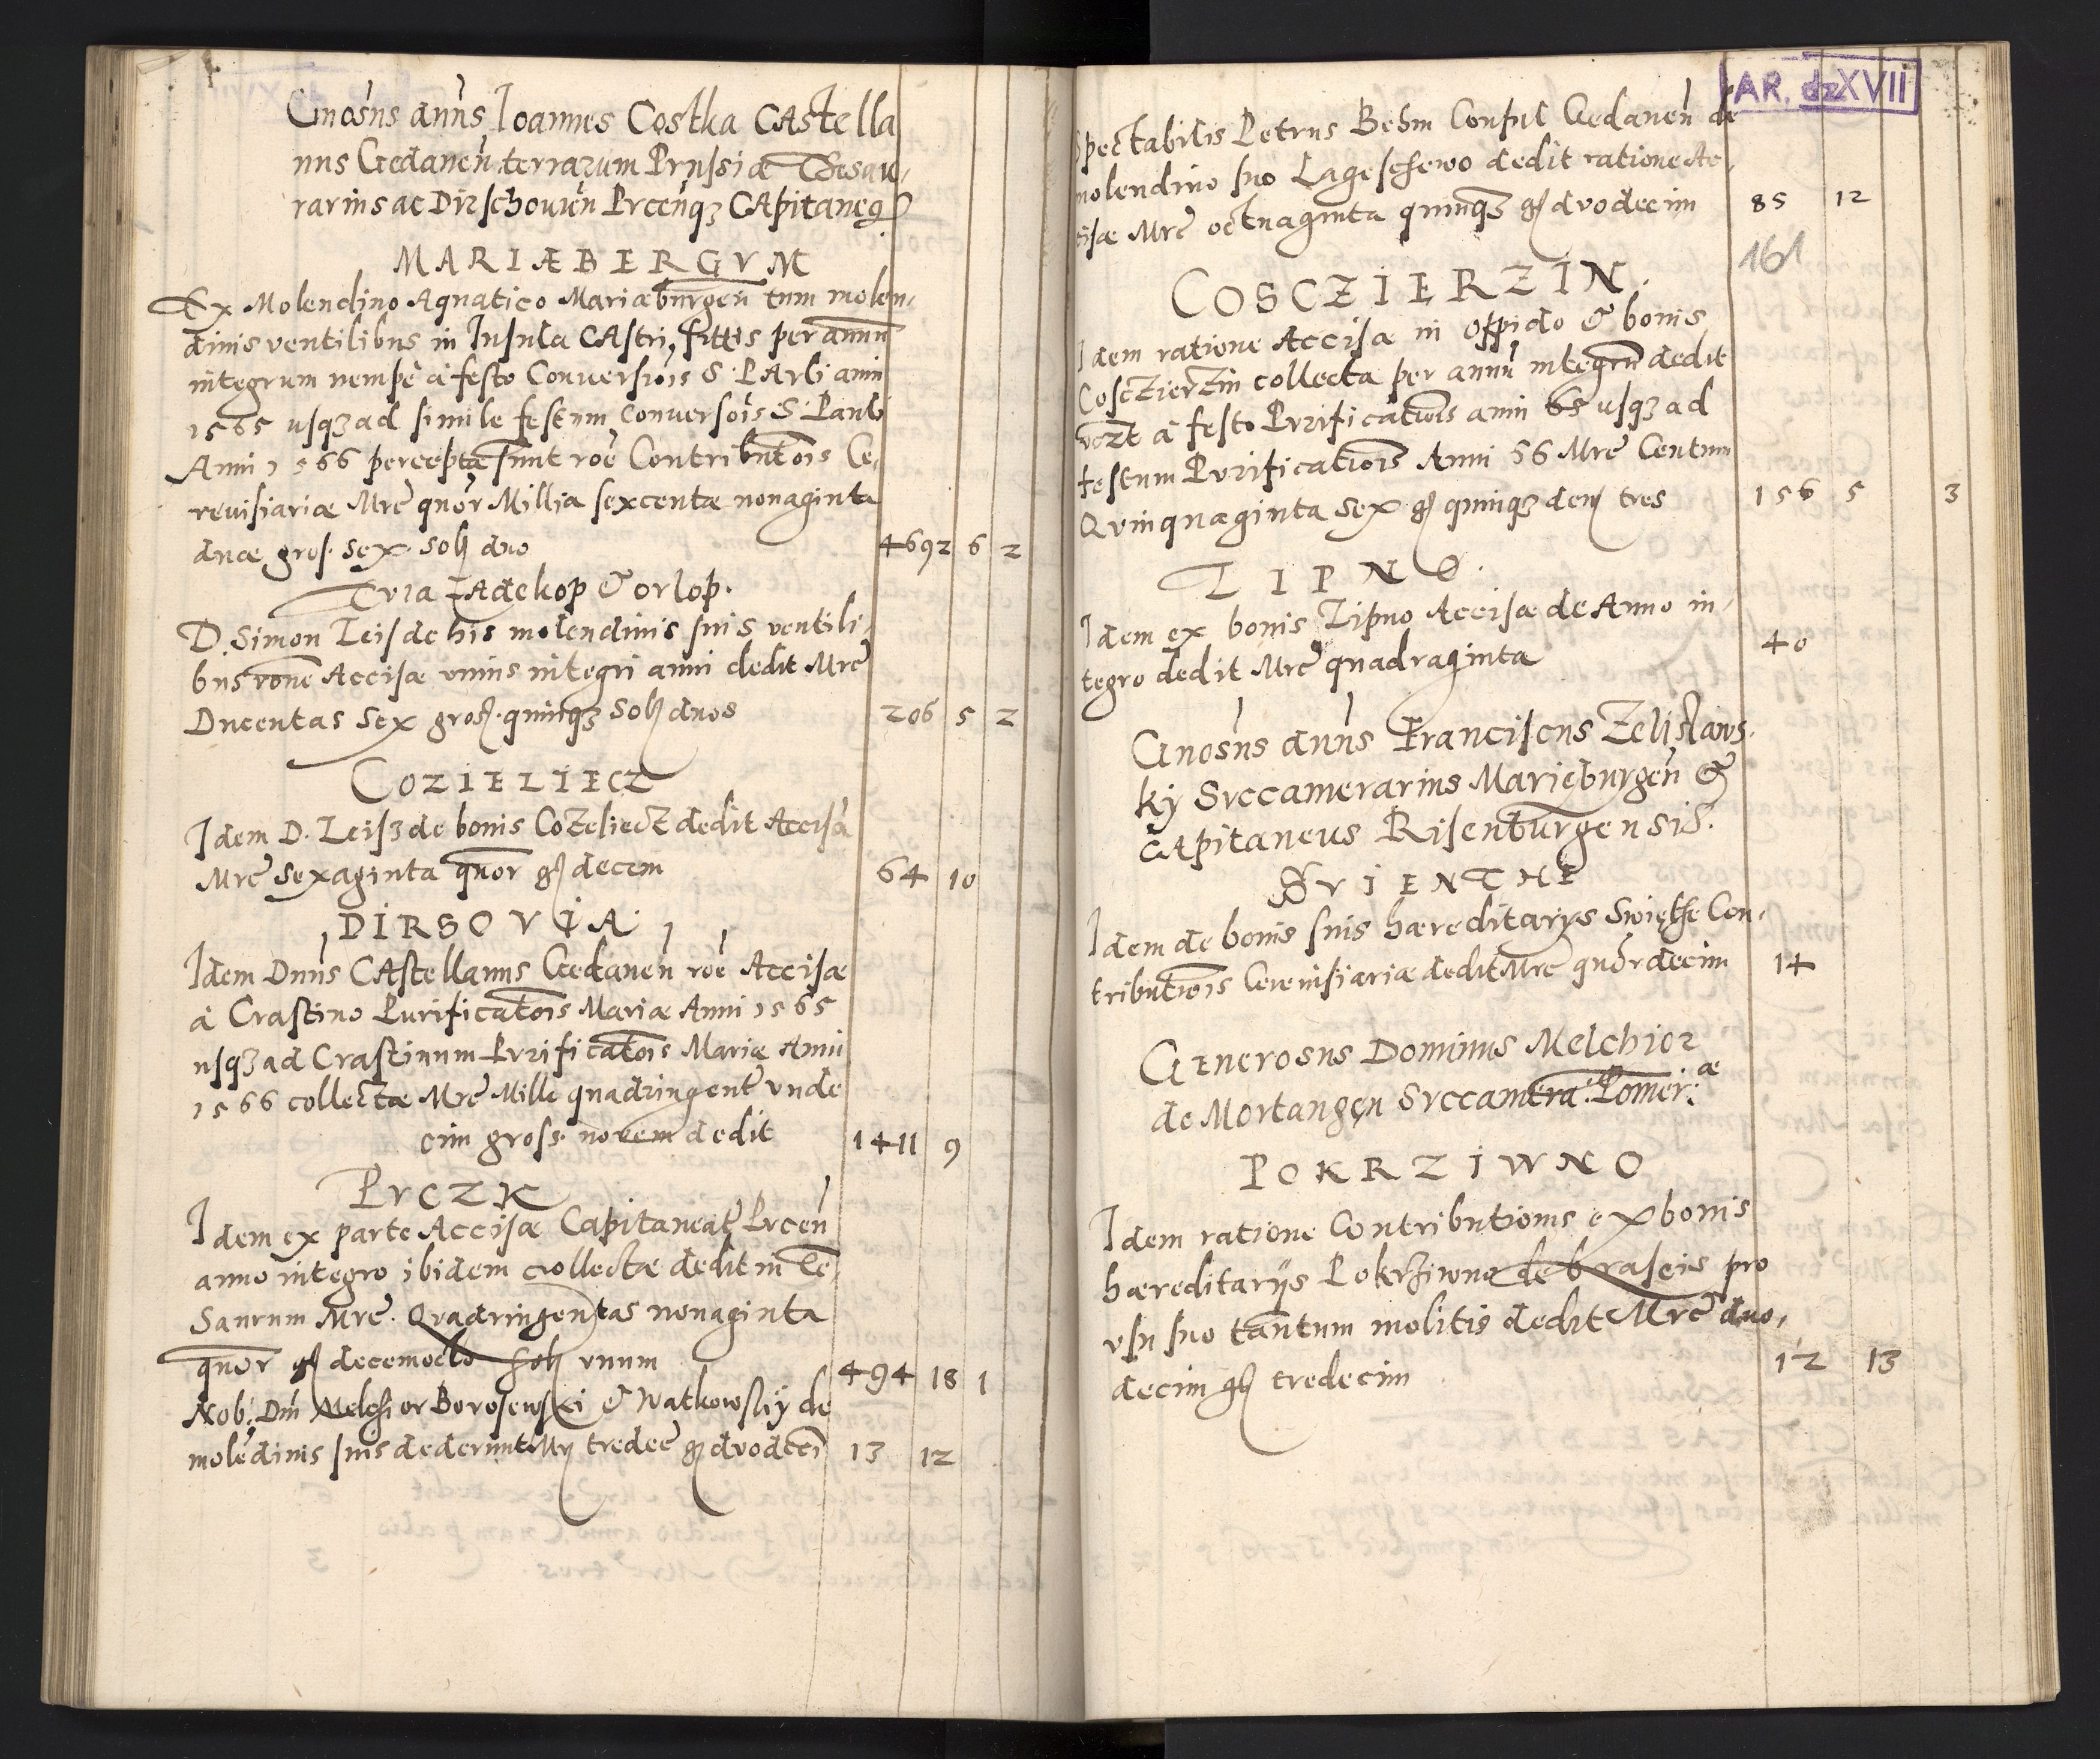 Gnosus dnns Ioannes Costka CAstella
nus Gedanen terrarum Prussiæ Thesau,
rarius ac Dirschouien Pucenqz CApitaneq
MARIÆBERGVM
Ex Molendino Aquatico Mariæburgen tum molen,
dinis ventilibus in Insula CAstri, sittis per annu
integrum nempè à festo Conuersiois S. PAuli anni
1565 usqz ad simile festum conuersois S. Pauli
Anni 1566 perceptæ sunt roe Contributois Ce,
reuisiariæ Mrc quor Millia sexcentæ nonaginta
duæ gros. sex. sol duo 4692 6 2
D. Simon Leis de his molendinis suis ventili,
bus rone Accisæ unius integri anni dedit Mrc
Ducentas Sex gros. quinqz sol duos 206 5 2
COZIELIECZ
Idem D. Leisz de bonis Cozeliecz dedit Accisa
Mrc sexaginta quor g decem 64 10
DIRSOVIA.
Idem Dnns CAstellanus Gedanen roe Accisæ
à Crastino Purificatois Mariæ Anni 1565
usqz ad Crastinum Purificatois Mariæ Anni
1566 collectæ Mrc Mille quadringent vnde
cim gross. novem dedit 1411 9
PVCZK
Idem ex parte Accisæ Capitaneat Pucen
anno integro ibidem collectæ dedit in Te,
saurum Mrc. Quadringentas nonaginta
quor g decemocto sol vnum 494 18 1
Nob. Dni Melchior Borosewski & Watkowskÿ de
moledinis suis dederunt Mr tredec g duodeci 13 12
AR. dz XVII
Spectabilis Petrus Behm Consul Gedanen de
molendino suo Lageschewo dedit ratione Ac,
cisæ Mrc octuaginta quinqz g duodecim 85 12
161
COSCZIERZIN.
Idem ratione Accisæ in oppido & bonis
Coscziertzin collecta per annu integru dedit
à festo Purificatiois anni 65 usqz ad
festum Purificatiois Anni 66 Mrc Centum
Quinquaginta sex g quinqz den tres 156 5 3
LIPNO.
Idem ex bonis Lipno Accisæ de Anno in,
tegro dedit Mrc quadraginta 40
Gnosus dnns Franciscus Zelislaws,
kÿ Succamerarius Marięburgen &
CApitaneus Risenburgensis.
SVIENTHE
Idem de bonis suis hæreditarys Swiethe Con,
tributiois Cereuisiariæ dedit Mrc quordecim 14
Generosus Dominus Melchior
de Mortangen Succamera: Pomer:æ
POKRZIWNO
Idem ratione Contributionis ex bonis
hæreditarÿs Pokrziwno de braseis pro
vsu suo tantum molitis dedit Mrc duo,
decim g tredecim 12 13